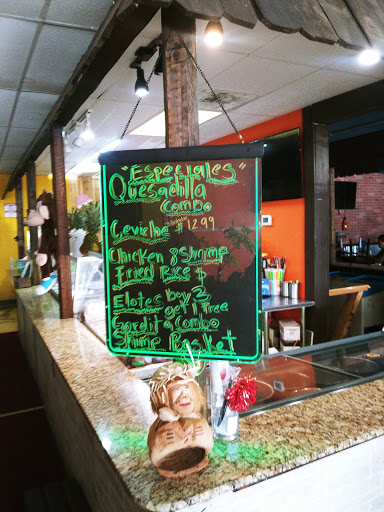 "Especiales"
Quesadilla
Combo
Ceviche $12.99
Chicken & Shrimp
Fried Rice $
Elotes buy 2
get 1 free
Gordita Combo
Shrimp Basket